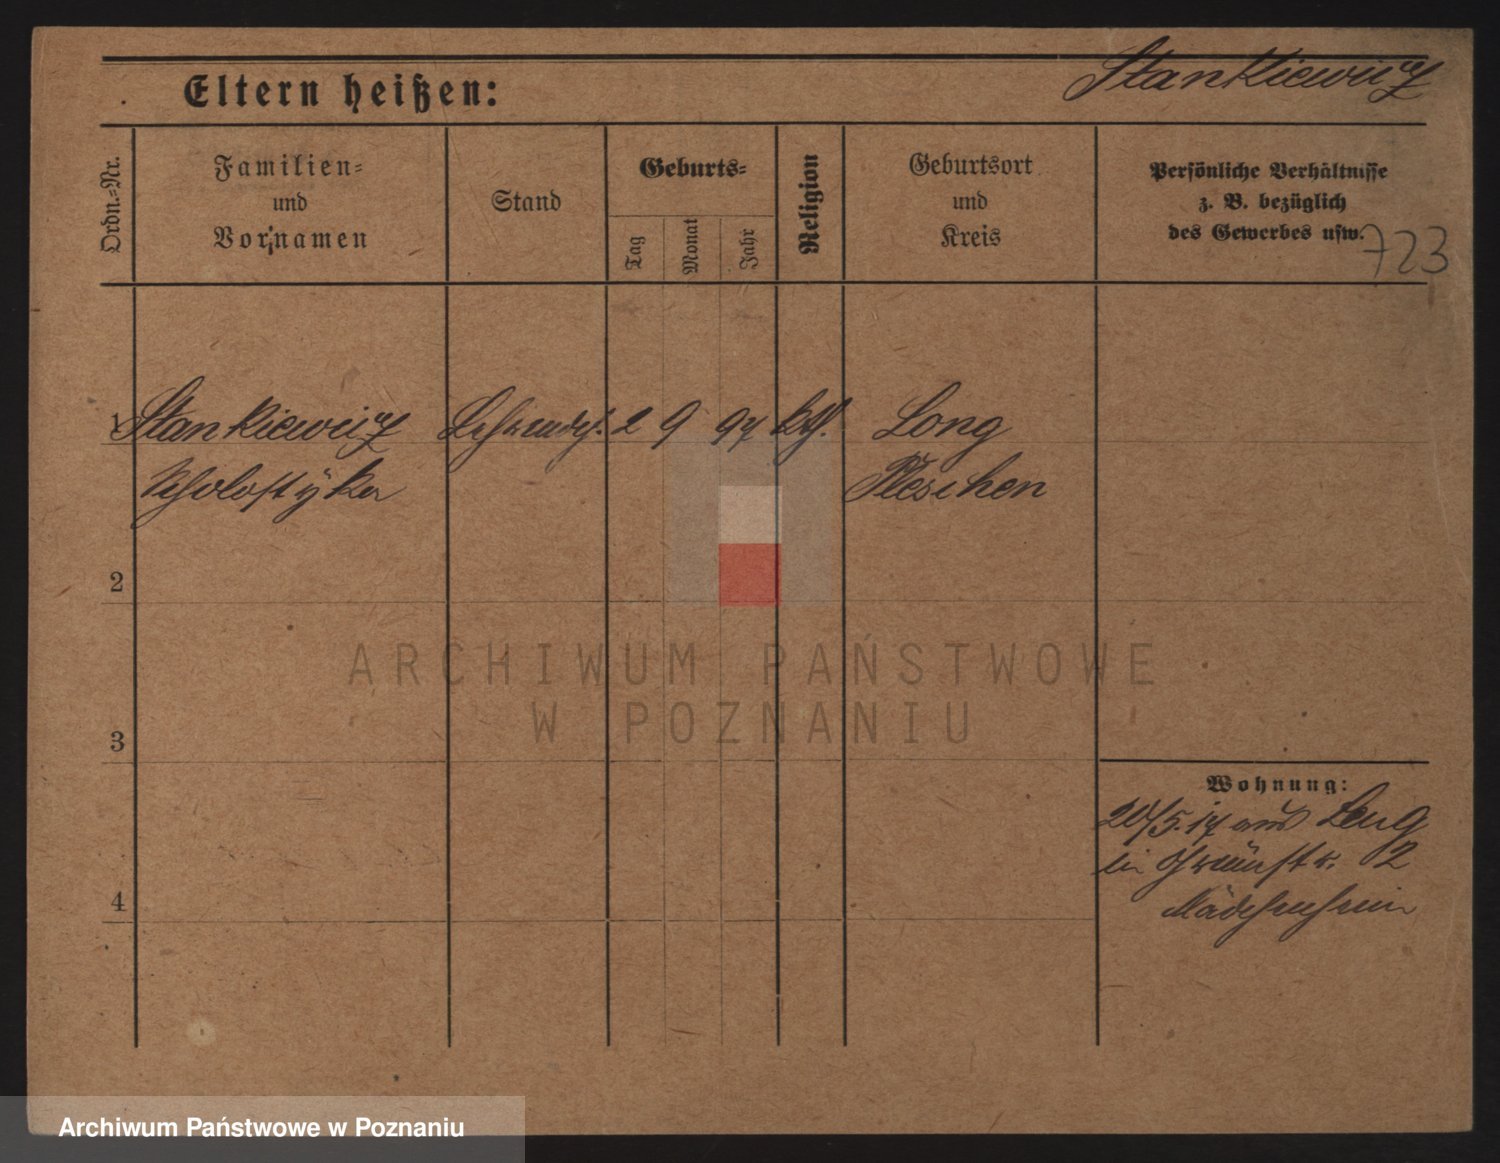 Stankiewicz
Eltern heißen:
Ordn.=Nr.
Familien=
und
Vornamen
Stand
Geburts=
Tag
Monat
Jahr
Religion
Geburtsort
und
Kreis
Persönliche Verhältnisse
z. B. bezüglich
des Gewerbes usw.
723
1 Stankiewicz 2 9 97 kth. Long
Pleschen
2
3
4
Wohnung:
20/5.17 aus Long
in Grünstr. 2
Mädchenheim
ARCHIWUM PAŃSTWOWE
W POZNANIU
Archiwum Państwowe w Poznaniu